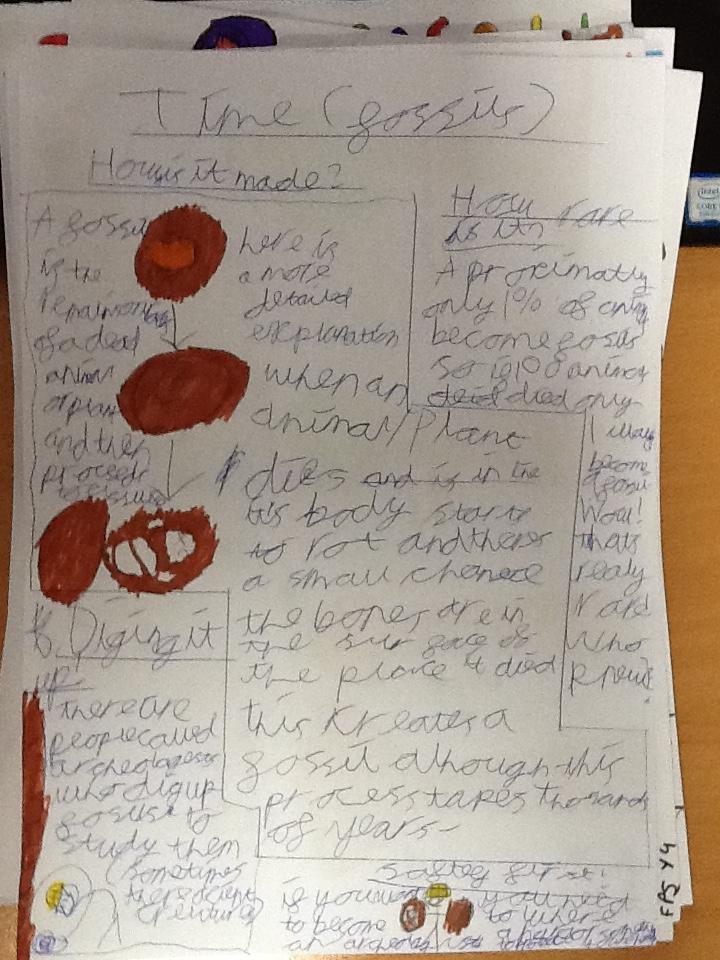 Time (fossils)
How is it made?
A fossil
is the
of a dead
animal
or plant
and then
process
here is
a more
detailed
explanation
when an
animal/Plant
dies and is in the
its body starts
to rot and theres
a small chance
the bones are in
the surface of
the place it died
this Kreates a
fossil although this
process takes thosands
of years-
How rare
is it?
Aproximatly
only 1% of
become fossils
so if 100 animals
deid died only
1 may
become
fossil
Wow!
thats
realy
rare
Who
knew?
Diging it
up!
there are
people called
archeologests
who dig up
fossils to
study them
(Sometimes
there
creatures)
Saftey first!
if you you need
to become to where
an
FPS Y4
intel
CORE